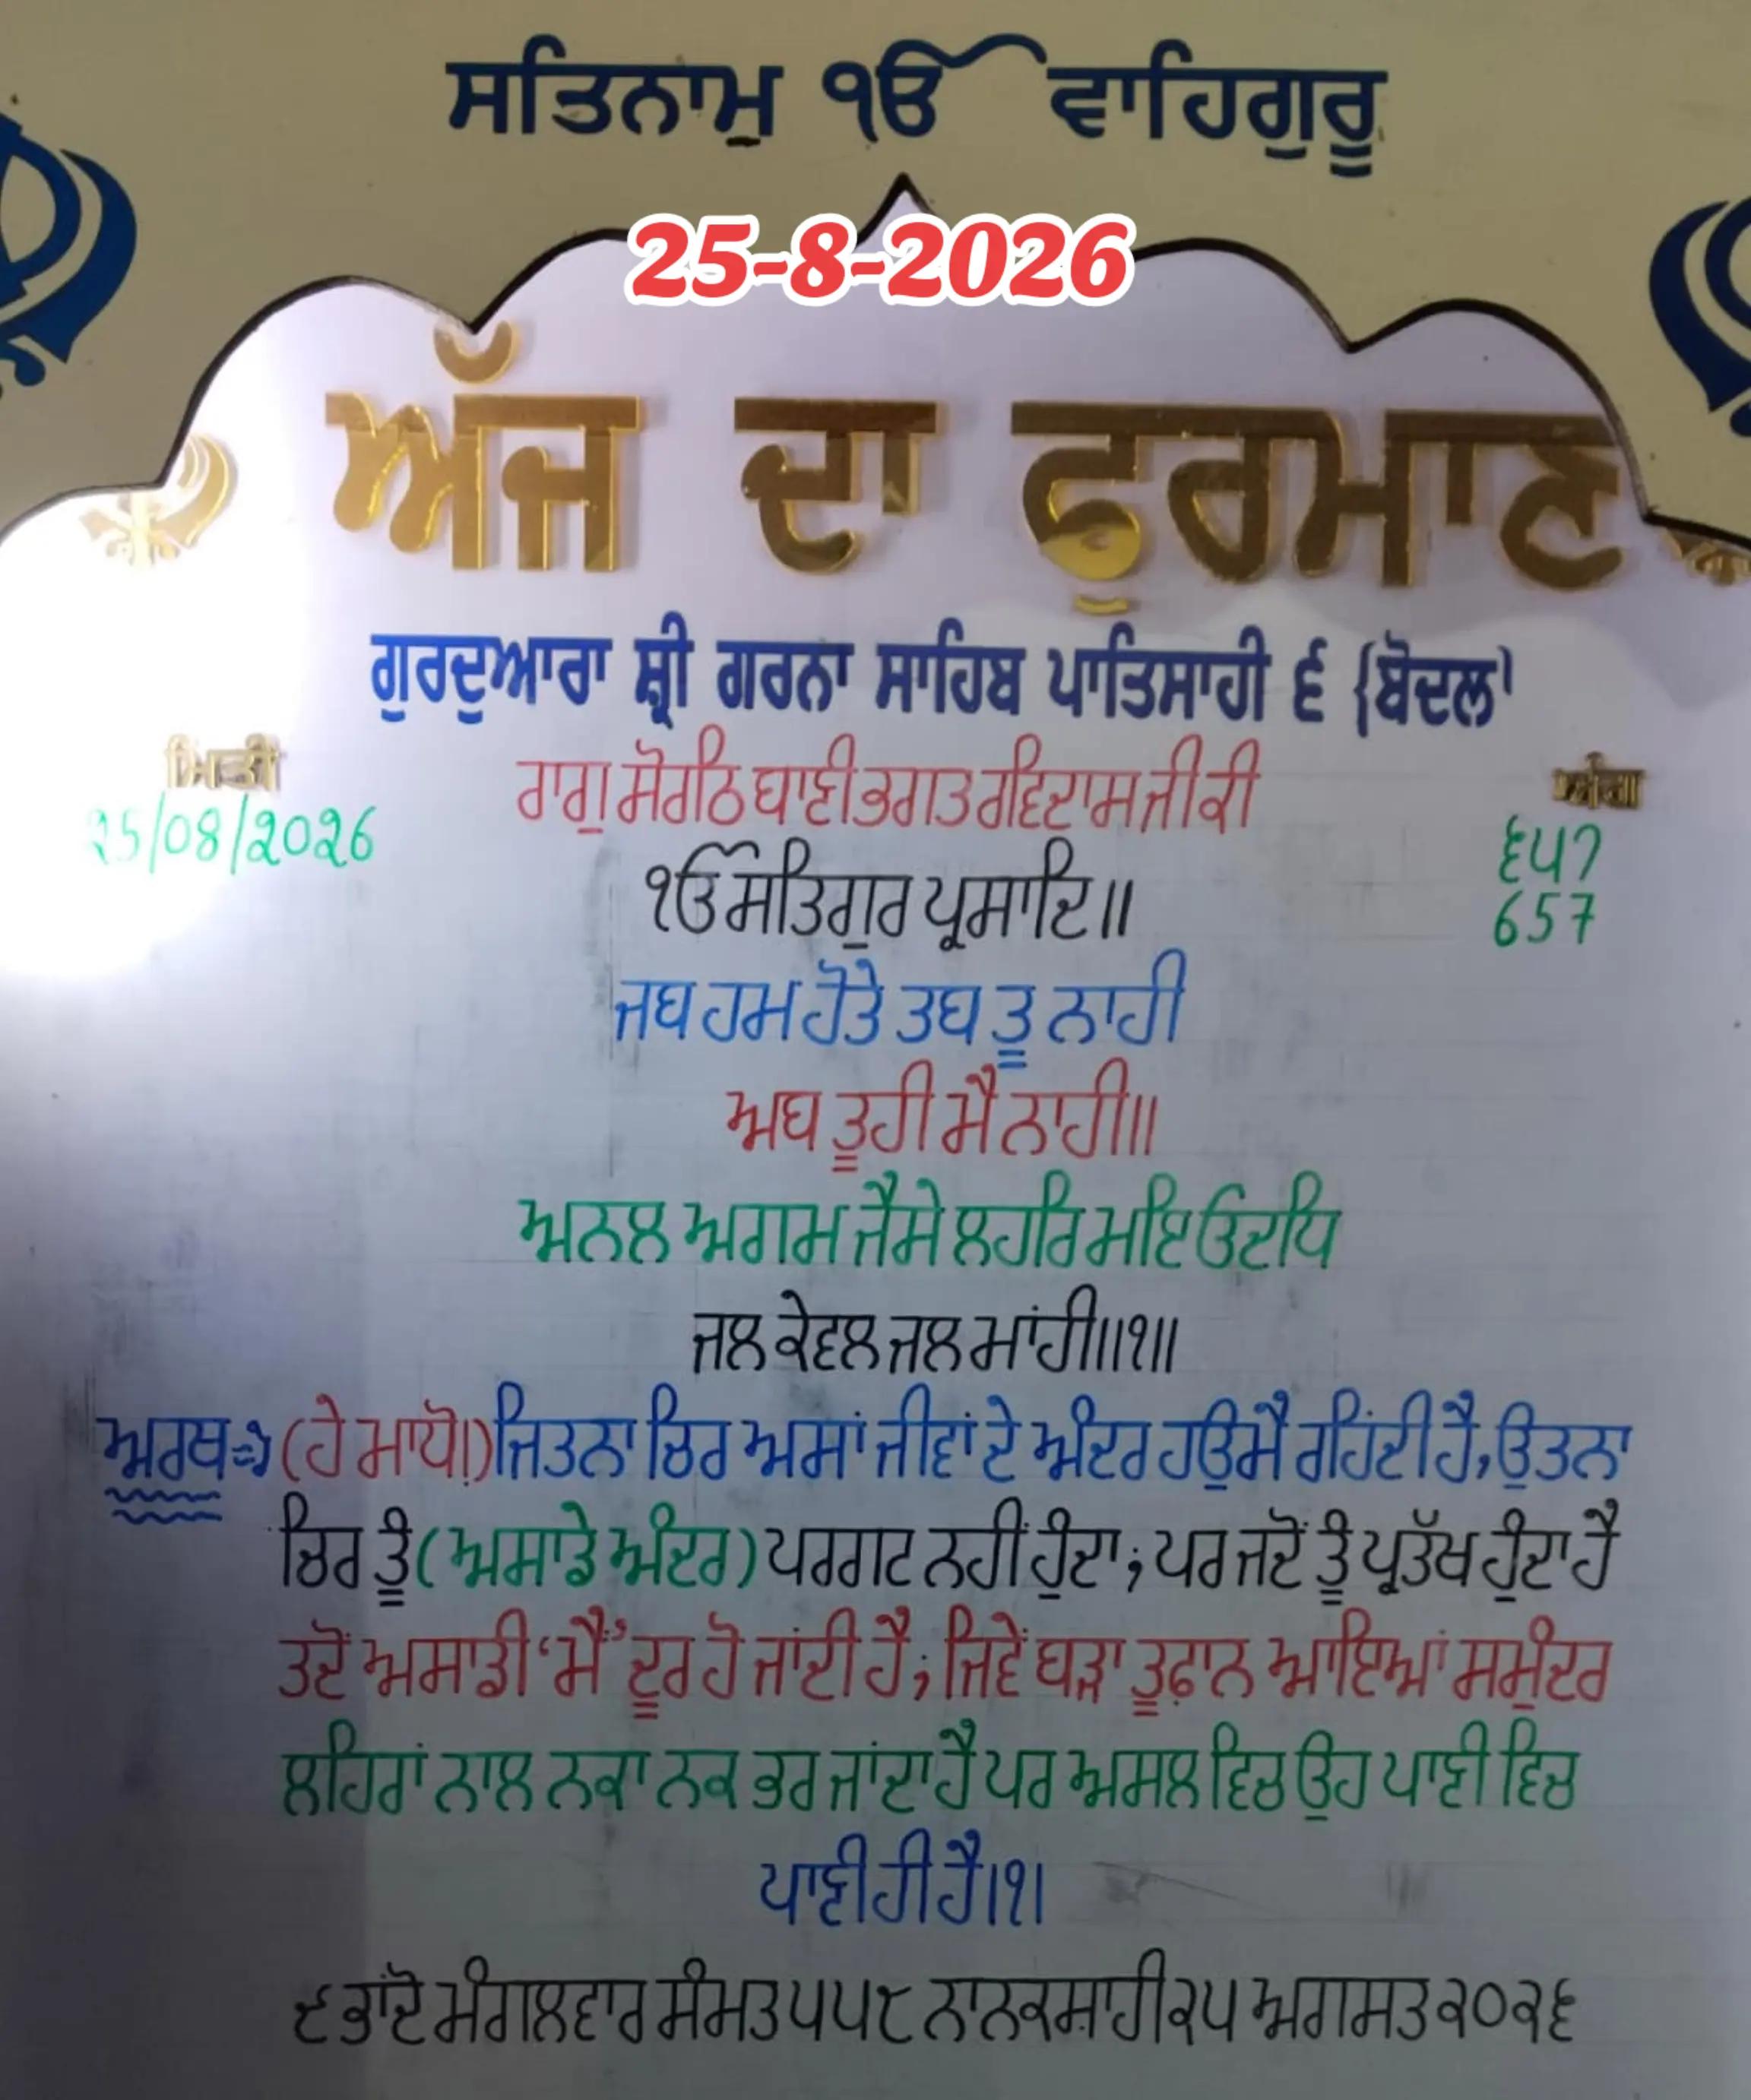 ਸਤਿਨਾਮੁ ੴ ਵਾਹਿਗੁਰੂ
25-8-2026
ਅੱਜ ਦਾ ਫੁਰਮਾਣ
ਗੁਰਦੁਆਰਾ ਸ਼੍ਰੀ ਗਰਨਾ ਸਾਹਿਬ ਪਾਤਿਸਾਹੀ ੬ {ਬੋਦਲ}
ਮਿਤੀ
25/08/2026
ਅੰਗ
੬੫੭
657
ਰਾਗੁ ਸੋਰਠਿ ਬਾਣੀ ਭਗਤ ਰਵਿਦਾਸ ਜੀ ਕੀ
ੴ ਸਤਿਗੁਰ ਪ੍ਰਸਾਦਿ॥
ਜਬ ਹਮ ਹੋਤੇ ਤਬ ਤੂ ਨਾਹੀ
ਅਬ ਤੂਹੀ ਮੈ ਨਾਹੀ॥
ਅਨਲ ਅਗਮ ਜੈਸੇ ਲਹਰਿ ਮਇ ਓਦਧਿ
ਜਲ ਕੇਵਲ ਜਲ ਮਾਂਹੀ॥੧॥
ਅਰਥ⇒ (ਹੇ ਮਾਧੋ!) ਜਿਤਨਾ ਚਿਰ ਅਸਾਂ ਜੀਵਾਂ ਦੇ ਅੰਦਰ ਹਉਮੈ ਰਹਿੰਦੀ ਹੈ, ਉਤਨਾ
ਚਿਰ ਤੂੰ (ਅਸਾਡੇ ਅੰਦਰ) ਪਰਗਟ ਨਹੀਂ ਹੁੰਦਾ; ਪਰ ਜਦੋਂ ਤੂੰ ਪ੍ਰਤੱਖ ਹੁੰਦਾ ਹੈ
ਤਦੋਂ ਅਸਾਡੀ 'ਮੈਂ' ਦੂਰ ਹੋ ਜਾਂਦੀ ਹੈ; ਜਿਵੇਂ ਬੜਾ ਤੂਫ਼ਾਨ ਆਇਆਂ ਸਮੁੰਦਰ
ਲਹਿਰਾਂ ਨਾਲ ਨਕਾ ਨਕ ਭਰ ਜਾਂਦਾ ਹੈ ਪਰ ਅਸਲ ਵਿਚ ਉਹ ਪਾਣੀ ਵਿਚ
ਪਾਣੀ ਹੀ ਹੈ।੧।
੯ ਭਾਂਦੋ ਮੰਗਲਵਾਰ ਸੰਮਤ ੫੫੮ ਨਾਨਕਸ਼ਾਹੀ ੨੫ ਅਗਸਤ ੨੦੨੬